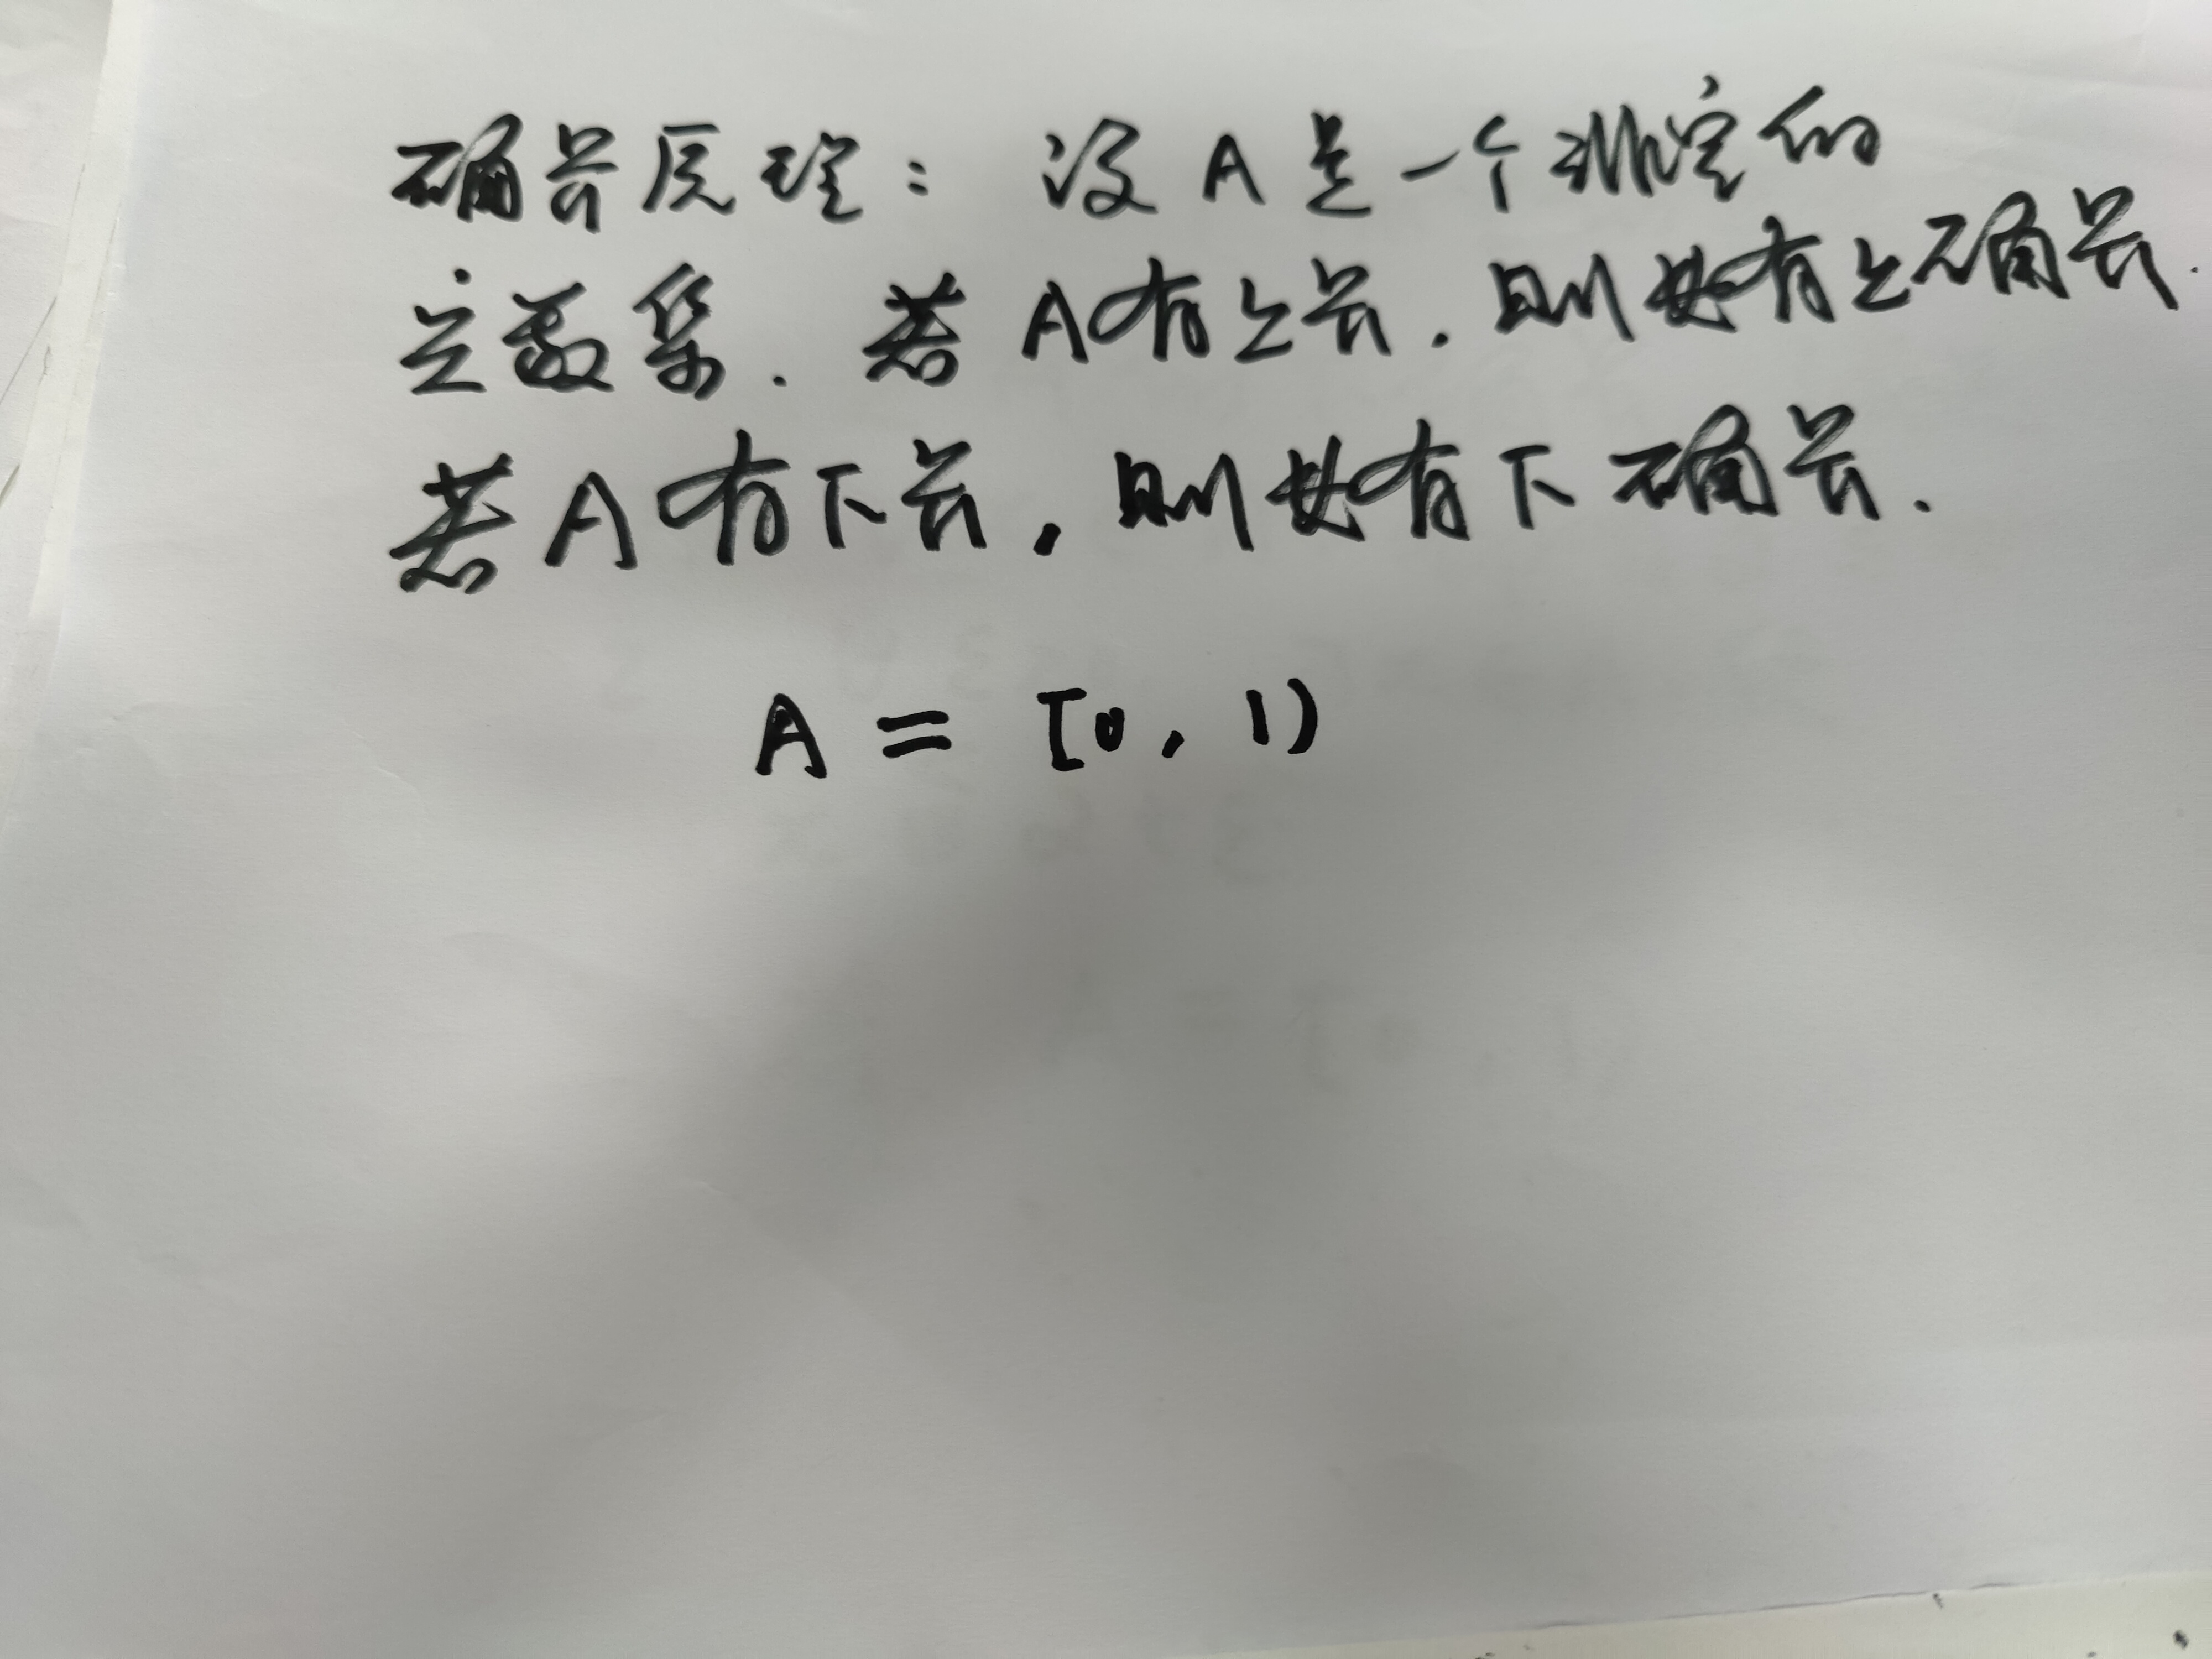 确界原理：设A是一个非空的
实数集. 若A有上界. 则必有上确界.
若A有下界, 则必有下确界.
A = [0, 1)